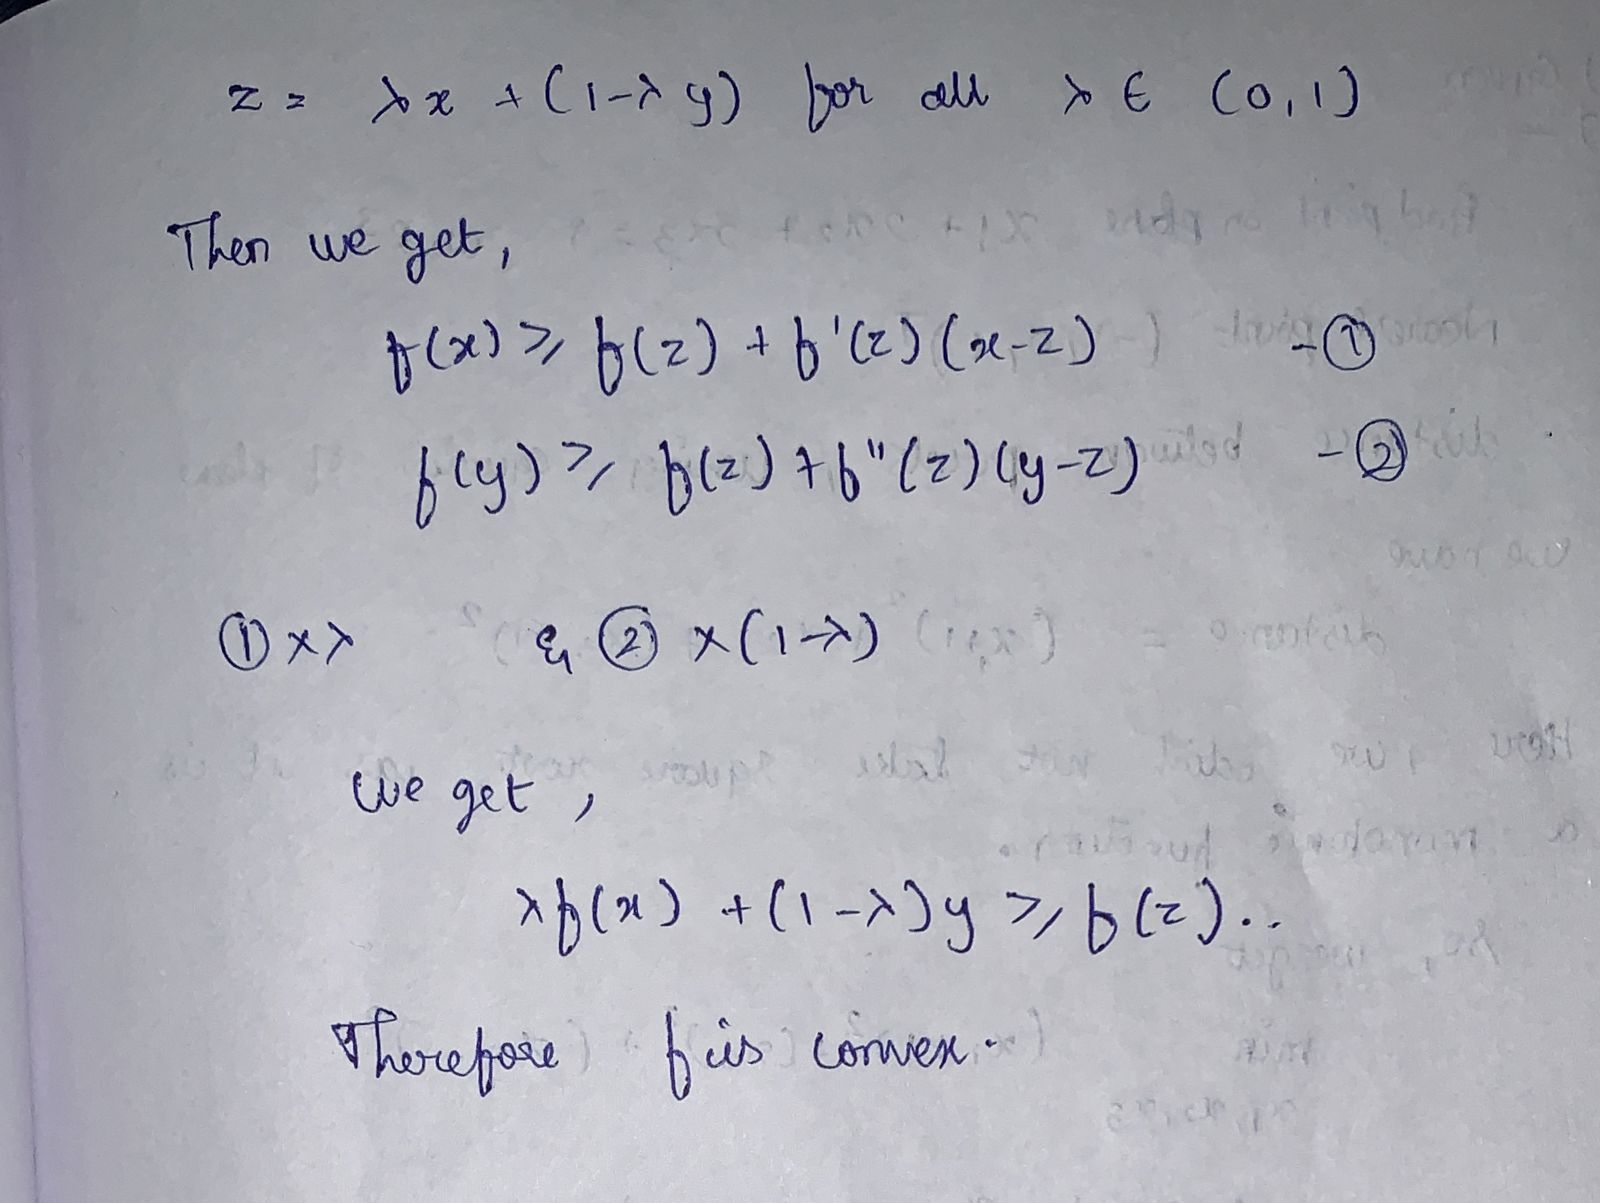 z = λx + (1-λy) for all λ ∈ (0,1)
Then we get,
f(x) ≥ f(z) + f'(z)(x-z) -①
f(y) ≥ f(z) + f"(z)(y-z) -②
① × λ & ② × (1-λ)
we get,
λf(x) + (1-λ)y ≥ f(z)..
Therefore f is convex.